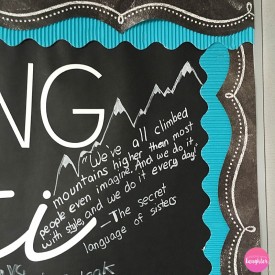 NG
"We've all climbed
mountains higher than most
people even imagine. And we do it
with style, and we do it every day!"
—The secret
language of sisters
ti